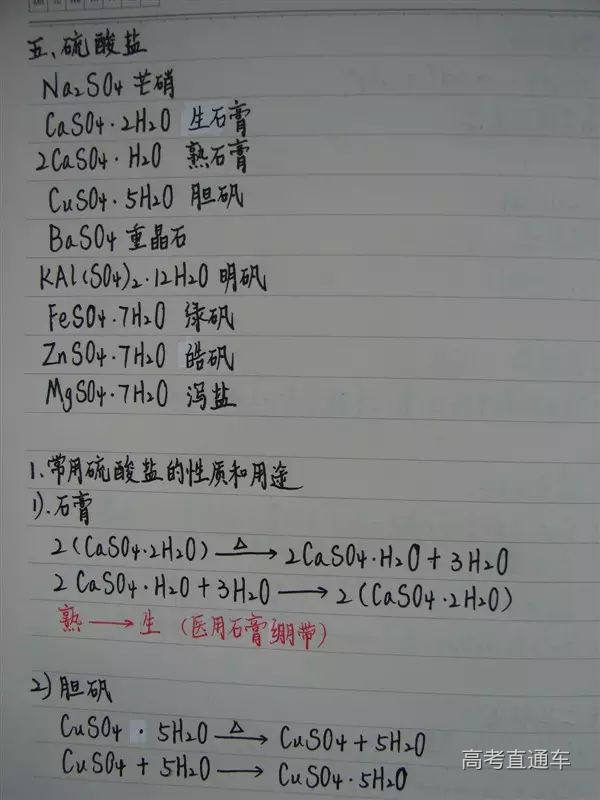 五、硫酸盐
Na₂SO₄ 芒硝
CaSO₄·2H₂O 生石膏
2CaSO₄·H₂O 熟石膏
CuSO₄·5H₂O 胆矾
BaSO₄ 重晶石
KAl(SO₄)₂·12H₂O 明矾
FeSO₄·7H₂O 绿矾
ZnSO₄·7H₂O 皓矾
MgSO₄·7H₂O 泻盐
1、常用硫酸盐的性质和用途
1).石膏
2(CaSO₄·2H₂O) —△→ 2CaSO₄·H₂O + 3H₂O
2CaSO₄·H₂O + 3H₂O ⟶ 2(CaSO₄·2H₂O)
熟 ⟶ 生 (医用石膏绷带)
2)胆矾
CuSO₄·5H₂O —△→ CuSO₄ + 5H₂O
CuSO₄ + 5H₂O ⟶ CuSO₄·5H₂O
高考直通车